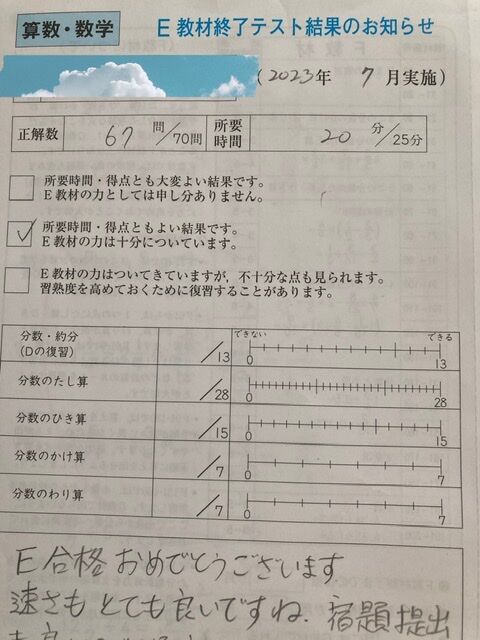 算数・数学
E教材終了テスト結果のお知らせ
(2023年 7月実施)
正解数 67問/70問 所要時間 20分/25分
所要時間・得点とも大変よい結果です。
E教材の力としては申し分ありません。
✓ 所要時間・得点ともよい結果です。
E教材の力は十分についています。
E教材の力はついてきていますが，不十分な点も見られます。
習熟度を高めておくために復習することがあります。
できない できる
分数・約分
(Dの復習) /13 0 13
分数のたし算 /28 0 28
分数のひき算 /15 0 15
分数のかけ算 /7 0 7
分数のわり算 /7 0 7
E合格おめでとうございます
速さもとても良いですね。宿題提出